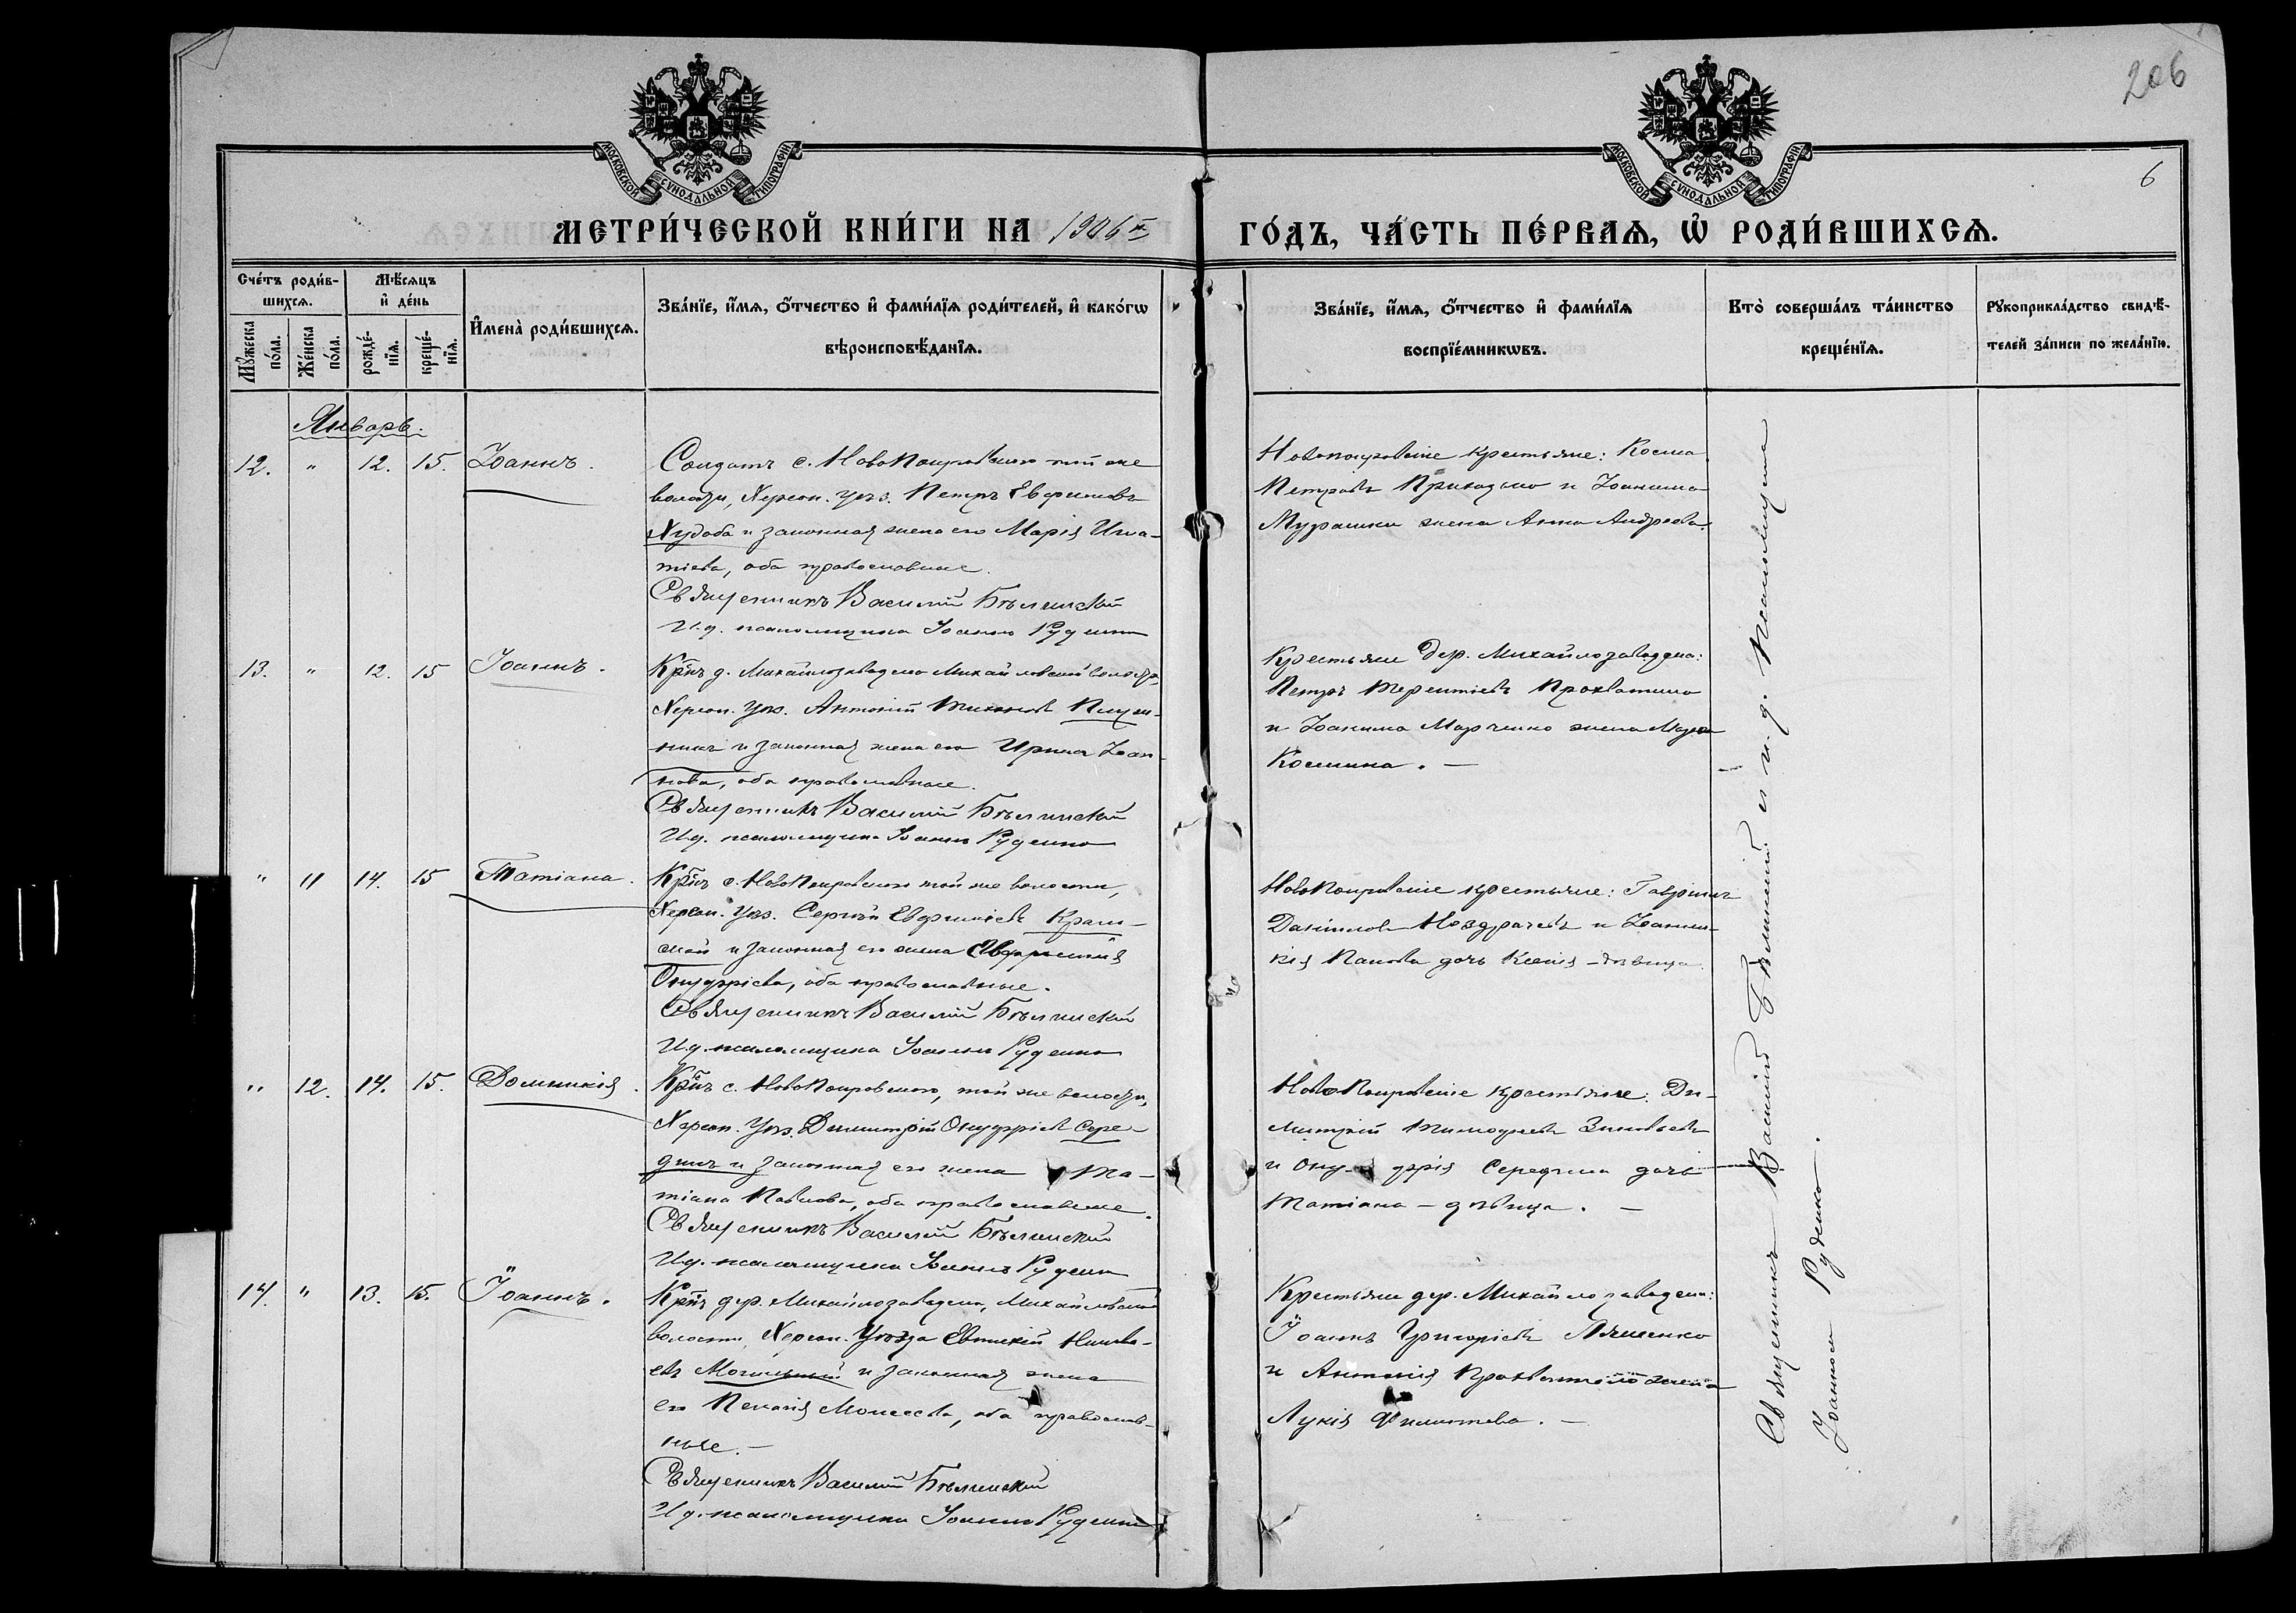 206
6
МОСКОВСКОЙ СѴНОДАЛЬНОЙ ТИПОГРАФІИ
МОСКОВСКОЙ СѴНОДАЛЬНОЙ ТИПОГРАФІИ
МЕТРИ́ЧЕСКОЙ КНИ́ГИ НА 1906 й
ГО́ДЪ, ЧА́СТЬ ПЕ́РВАѦ, Ѡ҆ РОДИ́ВШИХСѦ.
Сче́тъ роди́в-
шихсѧ.
Мѣ́сѧцъ
и҆ де́нь
Мꙋ́жеска по́ла.
Же́нска по́ла.
рожде́-
нїѧ.
креще́-
нїѧ.
И҆мена̀ роди́вшихсѧ.
Зва́нїе, и҆́мѧ, ѻ҆́тчество и҆ фами́лїѧ роди́телей, и҆ како́гѡ
вѣроисповѣ́данїѧ.
Зва́нїе, и҆́мѧ, ѻ҆́тчество и҆ фами́лїѧ
воспрїе́мникѡвъ.
Кто̀ соверша́лъ та́инство
креще́нїѧ.
Рꙋкоприкла́дство свидѣ́-
телей за́писи по жела́нїю.
Январь.
12. " 12. 15. Іоаннъ.
Солдатъ с. НовоПокровскаго той же
волости, Херсон. уѣз. Петръ Евфимовъ
Худоба и законная жена его Марія Игна-
тіева, оба православные.
Священникъ Василій Бѣлинскій
И.д. псаломщика Іоаннъ Руденко
Новопокровскіе крестьяне: Косма
Петровъ и Іоанна
Мурашки жена Анна Андреева.
13. " 12. 15 Іоаннъ.
Кр̃нъ д. Михайлозаводска Михайловской волости,
Херсон. уѣз. Антоній Тихоновъ Плуж-
никъ и законная жена его Ирина Іоан-
нова, оба православные.
Священникъ Василій Бѣлинскій
И.д. псаломщика Іоаннъ Руденко
Крестьяне дер. Михайлозаводска:
Петръ Терентіевъ
и Іоанна Марченко жена
Космина. —
" 11 14. 15 Татіана.
Кр̃нъ с. НовоПокровскаго той же волости,
Херсон. уѣз. Сергій Евфиміевъ Крам-
ской и законная его жена Евфросинія
Онуфріева, оба православные.
Священникъ Василій Бѣлинскій
И.д. псаломщика Іоаннъ Руденко
НовоПокровскіе крестьяне: Гавріилъ
Даніиловъ Ноздрачевъ и Іоанни-
кія Панова дочь Ксенія – дѣвица.
" 12. 14. 15. Домникія.
Кр̃нъ с. НовоПокровскаго, той же волости,
Херсон. уѣз. Димитрій Онуфріевъ Сере-
динъ и законная его жена Та-
тіана Павлова, оба православные.
Священникъ Василій Бѣлинскій
И.д. псаломщика Іоаннъ Руденко
НовоПокровскіе крестьяне: Ди-
митрій Тимофеевъ Зиновьевъ
и Ону- фрія Середина дочь
Татіана – дѣвица. —
14. " 13. 15. Іоаннъ.
Кр̃нъ дер. Михайлозаводска, Михайловской
волости, Херсон. Уѣзда Евтихій
Могильный и законная жена
его Пелагія Моисеева, оба православ-
ные. —
Священникъ Василій Бѣлинскій
И.д. псаломщика Іоаннъ Руденко
Крестьяне дер. Михайлозаводска:
Іоаннъ Григоріевъ Ляшенко
и Антонія жена
Лукія Филиппова. —
Священникъ Василій Бѣлинскій съ и. д. Псаломщика
Іоанномъ Руденко.